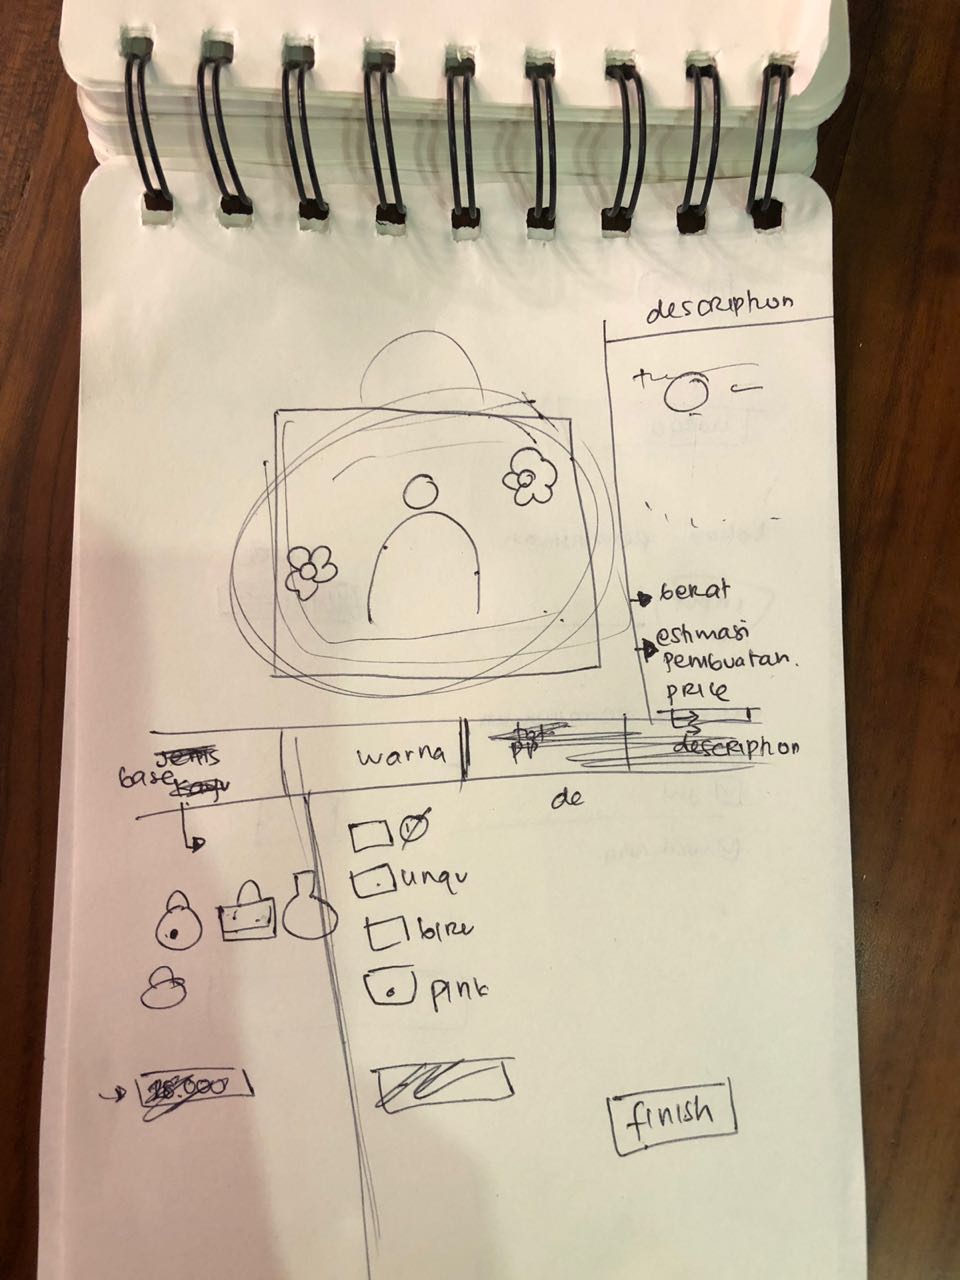 description
berat
estmasi
pembuatan.
price
Jenis
base
warna
pp
description
de
ungu
biru
pink
finish